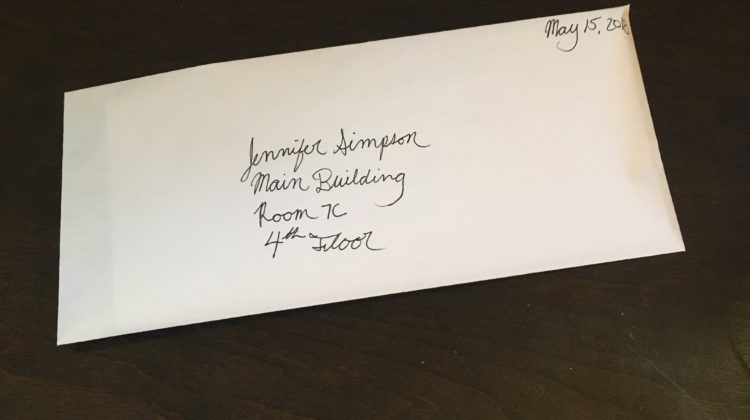 May 15,
Jennifer Simpson
Main Building
Room 7C
4th Floor